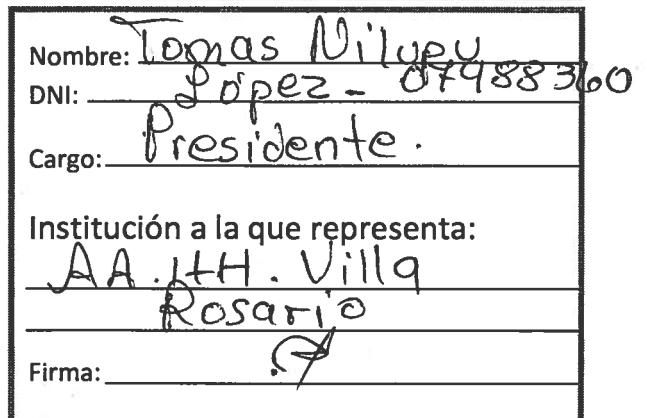 Nombre: Tomas Nilupu
DNI: López - 07988360
Cargo: Presidente.
Institución a la que representa:
AA.HH. Villa
Rosario
Firma: